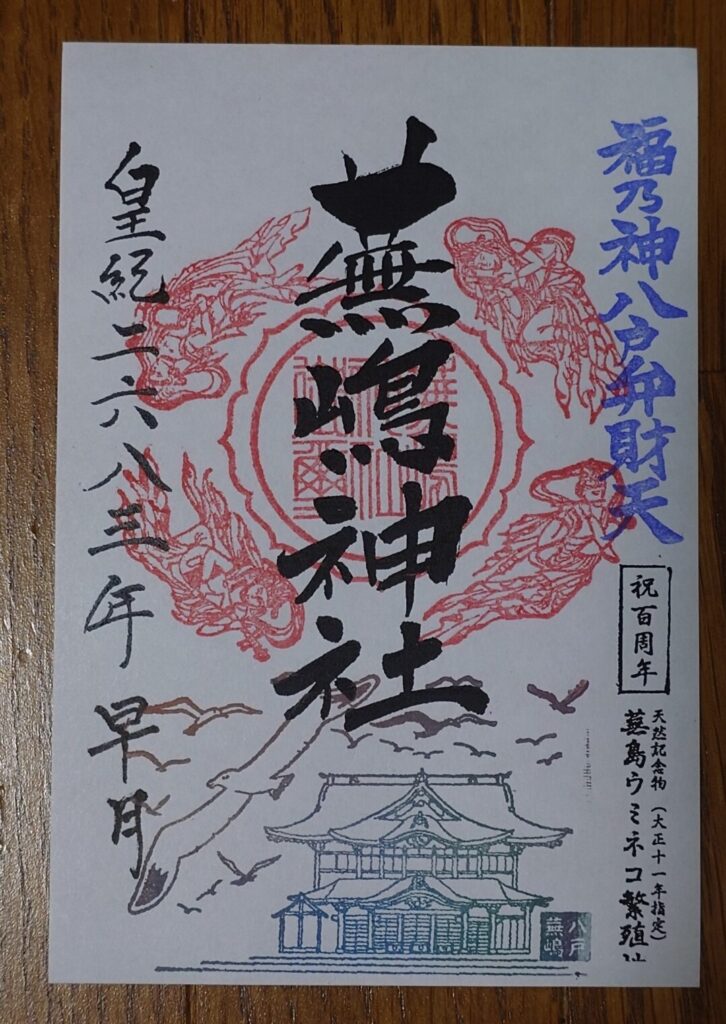 福乃神八戸弁財天
祝百周年
天然記念物（大正十一年指定）
蕪島ウミネコ繁殖
蕪嶋神社
皇紀二六八三年 早月
八戸
蕪嶋